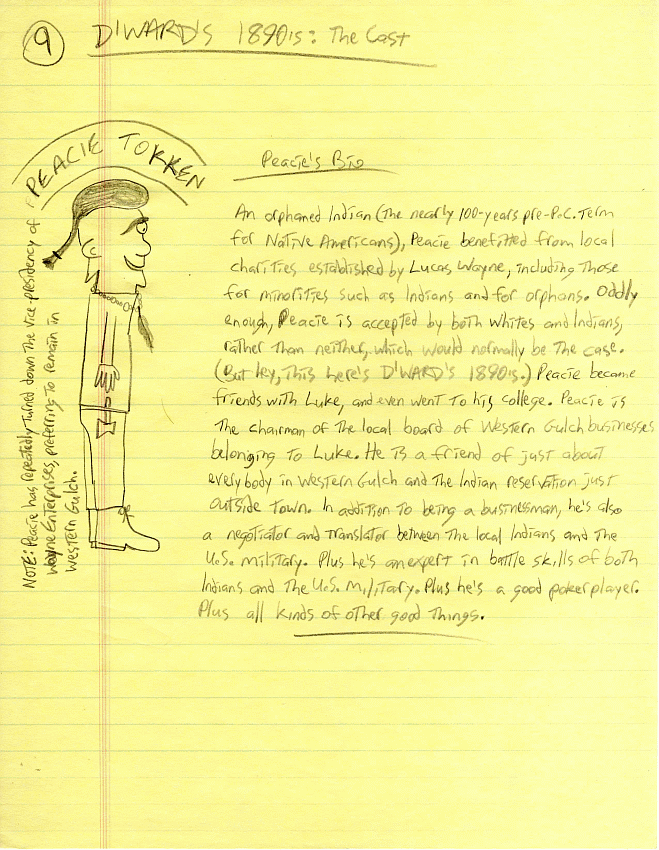 9
D'WARD'S 1890's: The Cast
PEACIE TOKKEN
Peacie's Bio
An orphaned Indian (the nearly 100-years pre-P.C. term
for Native Americans), Peacie benefitted from local
charities established by Lucas Wayne, including those
for minorities such as Indians and for orphans. Oddly
enough, Peacie is accepted by both whites and Indians,
rather than neither, which would normally be the case.
(But hey, this here's D'WARD'S 1890's.) Peacie became
friends with Luke, and even went to his college. Peacie is
the chairman of the local board of Western Gulch businesses
belonging to Luke. He is a friend of just about
everybody in Western Gulch and the Indian reservation just
outside town. In addition to being a businessman, he's also
a negotiator and translator between the local Indians and the
U.S. military. Plus he's an expert in battle skills of both
Indians and the U.S. military. Plus he's a good poker player.
Plus all kinds of other good things.
NOTE: Peacie has repeatedly turned down the vice-presidency of
Wayne Enterprises, preferring to remain in
Western Gulch.